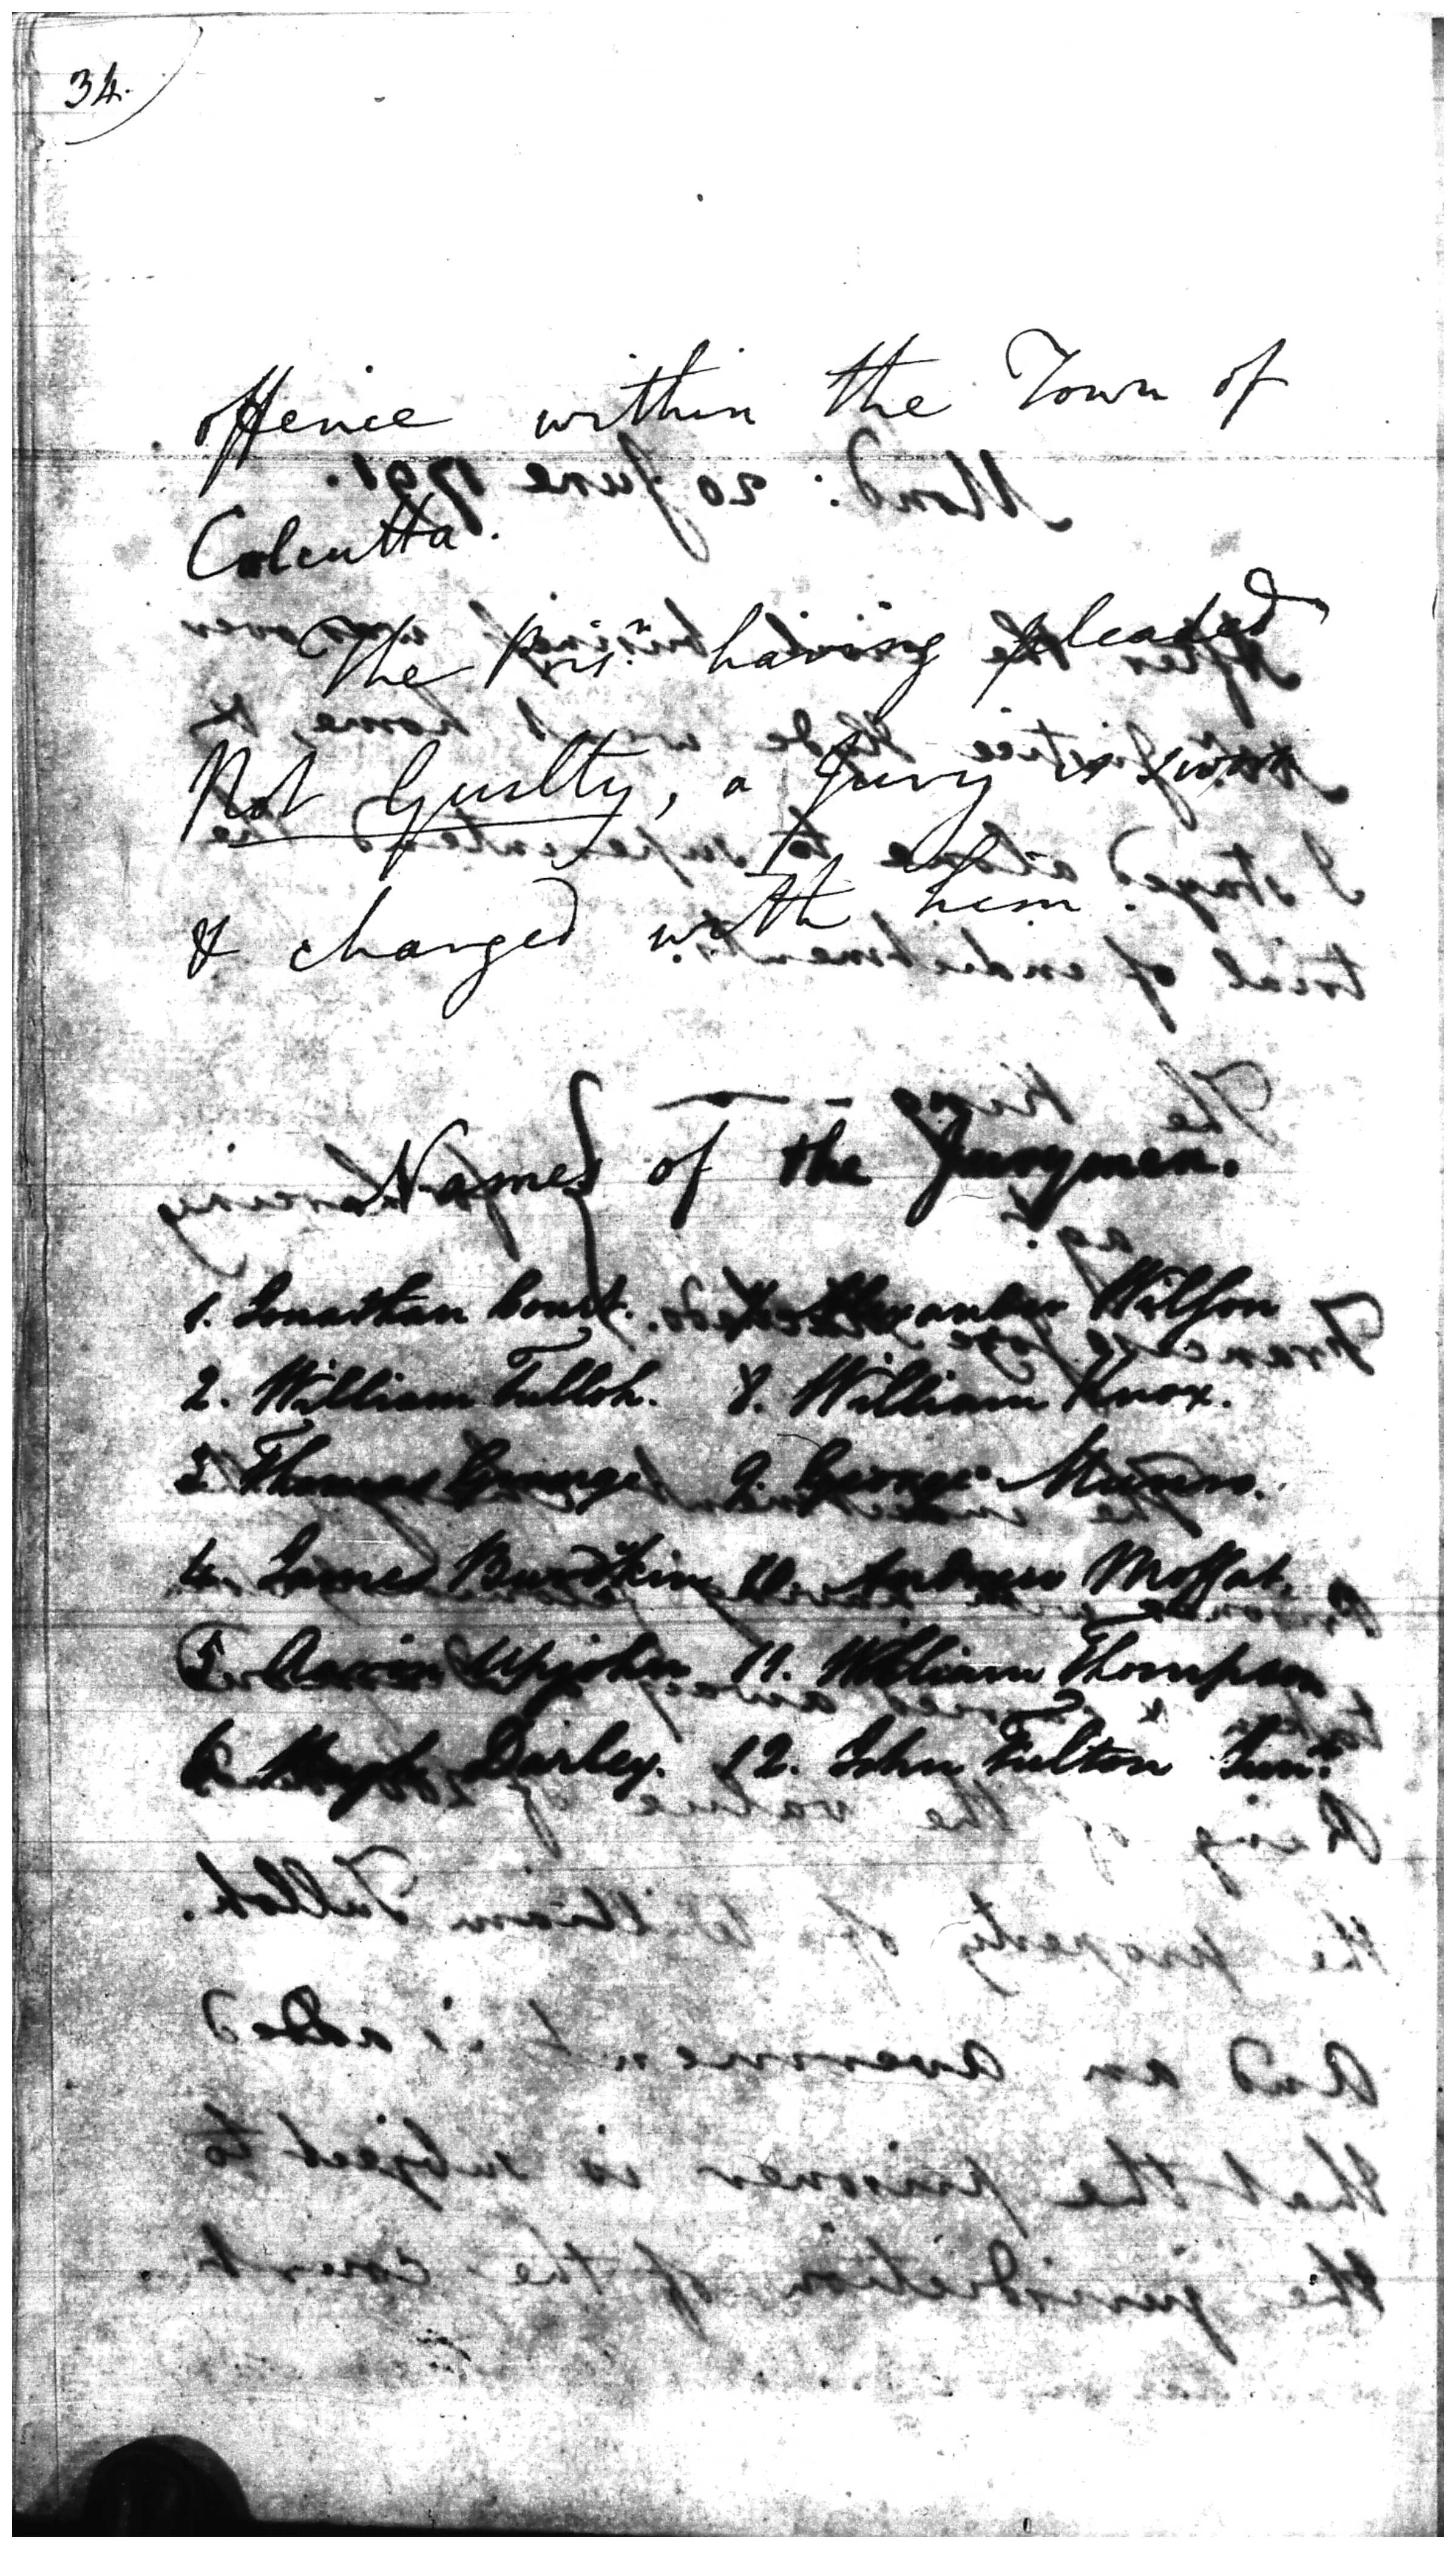 34.
offence within the Town of
Calcutta.
The Prisr. having pleaded
Not Guilty, a Jury is sworn
& charged with him
Names of the Jurymen.
1. Jonathan 7. Alexander Wilson
2. William Tulloh. 8. William Knox.
3. Thomas 9. George Munro.
4. James 10. Andrew Moffat.
5. Aaron Upjohn 11. William Thompson
6. Hugh Darley. 12. John Fulton Junr.